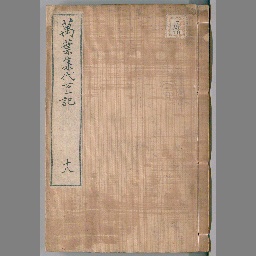 萬葉集代匠記
十八